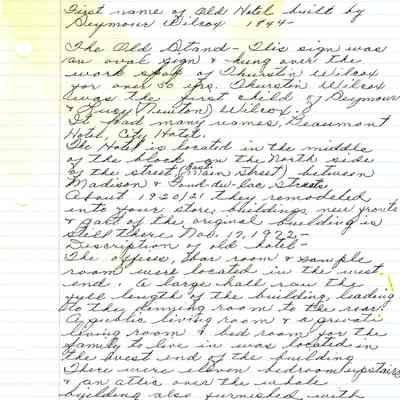 First name of Old Hotel built by
Seymour Wilcox 1844-
The Old Stand - This sign was
an oval sign & hung over the
work shop of Thurstin Wilcox
for over 50 yrs. Thurstin Wilcox
was the first child of Seymour
& Lucy (Newton) Wilcox.
It had many names, Beaumont
Hotel, City Hotel.
The Hotel is located in the middle
of the block on the North side
of the street (East Main Street) between
Madison & Fond-du-Lac Streets
About 1920/21 they remodeled
into four store buildings new fronts
& part of the original building is
still there Nov. 17, 1972-
Description of old hotel-
The office, bar room & sample
room were located in the west
end. A large hall ran the
full length of the building, leading
to the dining room to the rear.
A public living room & a private
living room & bed room for the
family to live in was located in
the east end of the building
There were eleven bedrooms upstairs
& an attic over the whole
building also furnished with